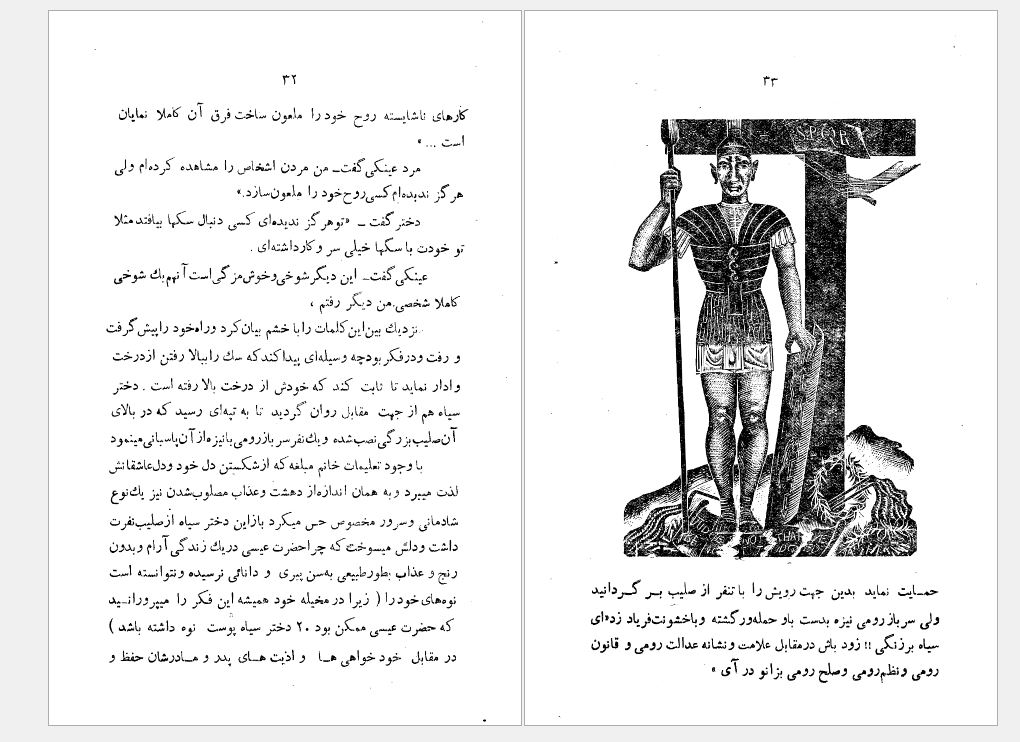 ۳۲
کارهای ناشایسته روح خود را ملعون ساخت فرق آن کاملا نمایان
است ... »
مرد عینکی گفت ــ من مردن اشخاص را مشاهده کرده‌ام ولی
هرگز ندیده‌ام کسی روح خود را ملعون سازد.»
دختر گفت ــ «تو هرگز ندیده‌ای کسی دنبال سگها بیافتد مثلا
تو خودت با سگها خیلی سر و کار داشته‌ای .
عینکی گفت ــ این دیگر شوخی و خوش‌مزگی است آنهم یك شوخی
کاملا شخصی. من دیگر رفتم ،
نزدیك بین این کلمات را با خشم بیان کرد و راه خود را پیش گرفت
و رفت و در فکر بود چه وسیله‌ای پیدا کند که سك را ببالا رفتن از درخت
وادار نماید تا ثابت کند که خودش از درخت بالا رفته است . دختر
سیاه هم از جهت مقابل روان گردید تا به تپه‌ای رسید که در بالای
آن صلیب بزرگی نصب شده و یك نفر سرباز رومی با نیزه از آن پاسبانی مینمود
با وجود تعلیمات خانم مبلغه که از شکستن دل خود و دل عاشقانش
لذت میبرد و به همان اندازه از دهشت و عذاب مصلوب شدن نیز یك نوع
شادمانی و سرور مخصوص حس میکرد باز این دختر سیاه از صلیب نفرت
داشت و دلش میسوخت که چرا حضرت عیسی در یك زندگی آرام و بدون
رنج و عذاب بطور طبیعی به سن پیری و دانائی نرسیده و نتوانسته است
نوه‌های خود را ( زیرا در مخیله خود همیشه این فکر را میپرورانــید
که حضرت عیسی ممکن بود ۲۰ دختر سیاه پوست نوه داشته باشد )
در مقابل خود خواهی هــا و اذیت هــای پدر و مــادرشان حفظ و
۳۳
S.P.Q.R
حمــایت نماید بدین جهت رویش را با تنفر از صلیب بــر گــردانید
ولی سرباز رومی نیزه بدست باو حمله‌ور گشته و باخشونت فریاد زد «ای
سیاه برزنگی !! زود باش در مقابل علامت و نشانه عدالت رومی و قانون
رومی و نظم رومی و صلح رومی بزانو در آی »